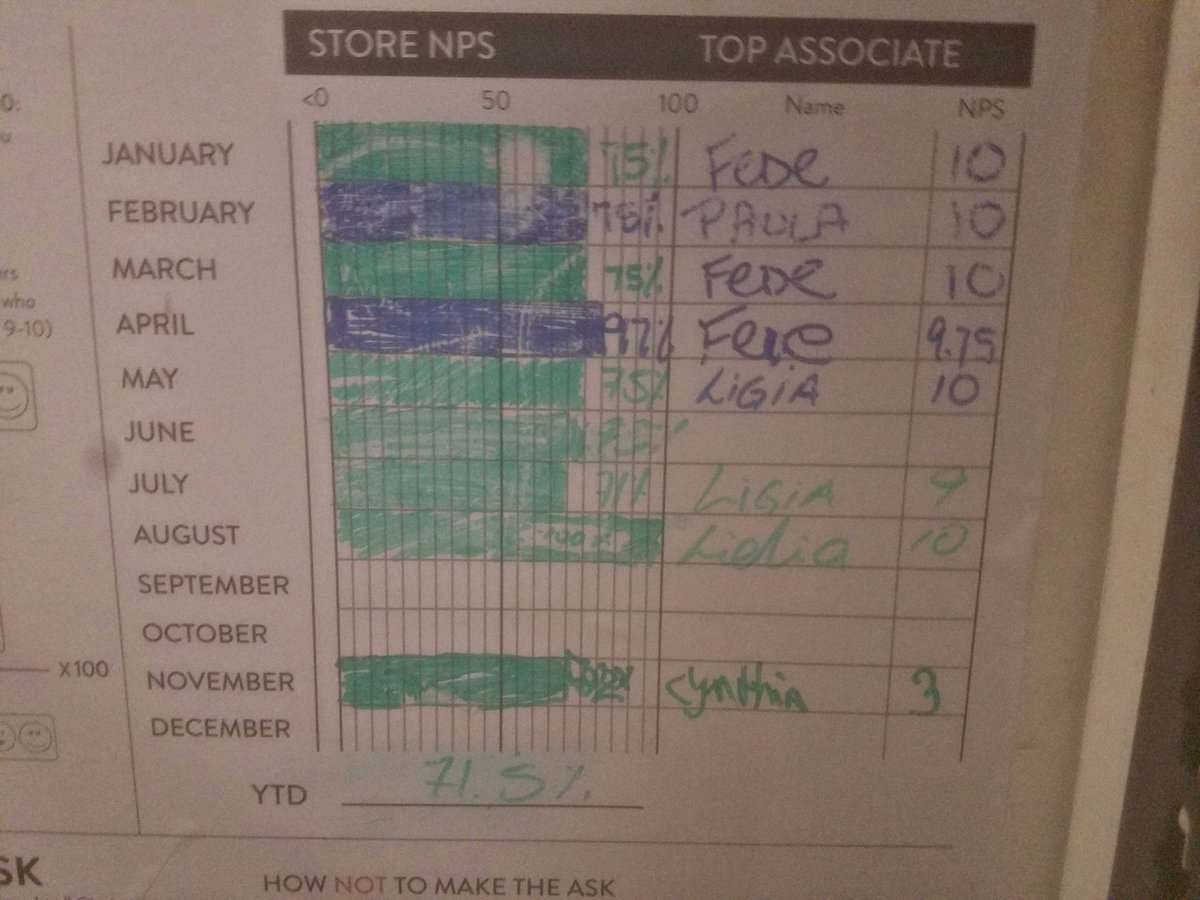 STORE NPS TOP ASSOCIATE
<0 50 100 Name NPS
JANUARY 75% FEDE 10
FEBRUARY 78% PAULA 10
MARCH 75% FEDE 10
APRIL 97% FEDE 9.75
MAY 75% LIGIA 10
JUNE 75%
JULY 71% LIGIA 9
AUGUST 100% Lidia 10
SEPTEMBER
OCTOBER
NOVEMBER Cynthia 3
DECEMBER
YTD 71.5%
who
9-10)
X100
SK
HOW NOT TO MAKE THE ASK